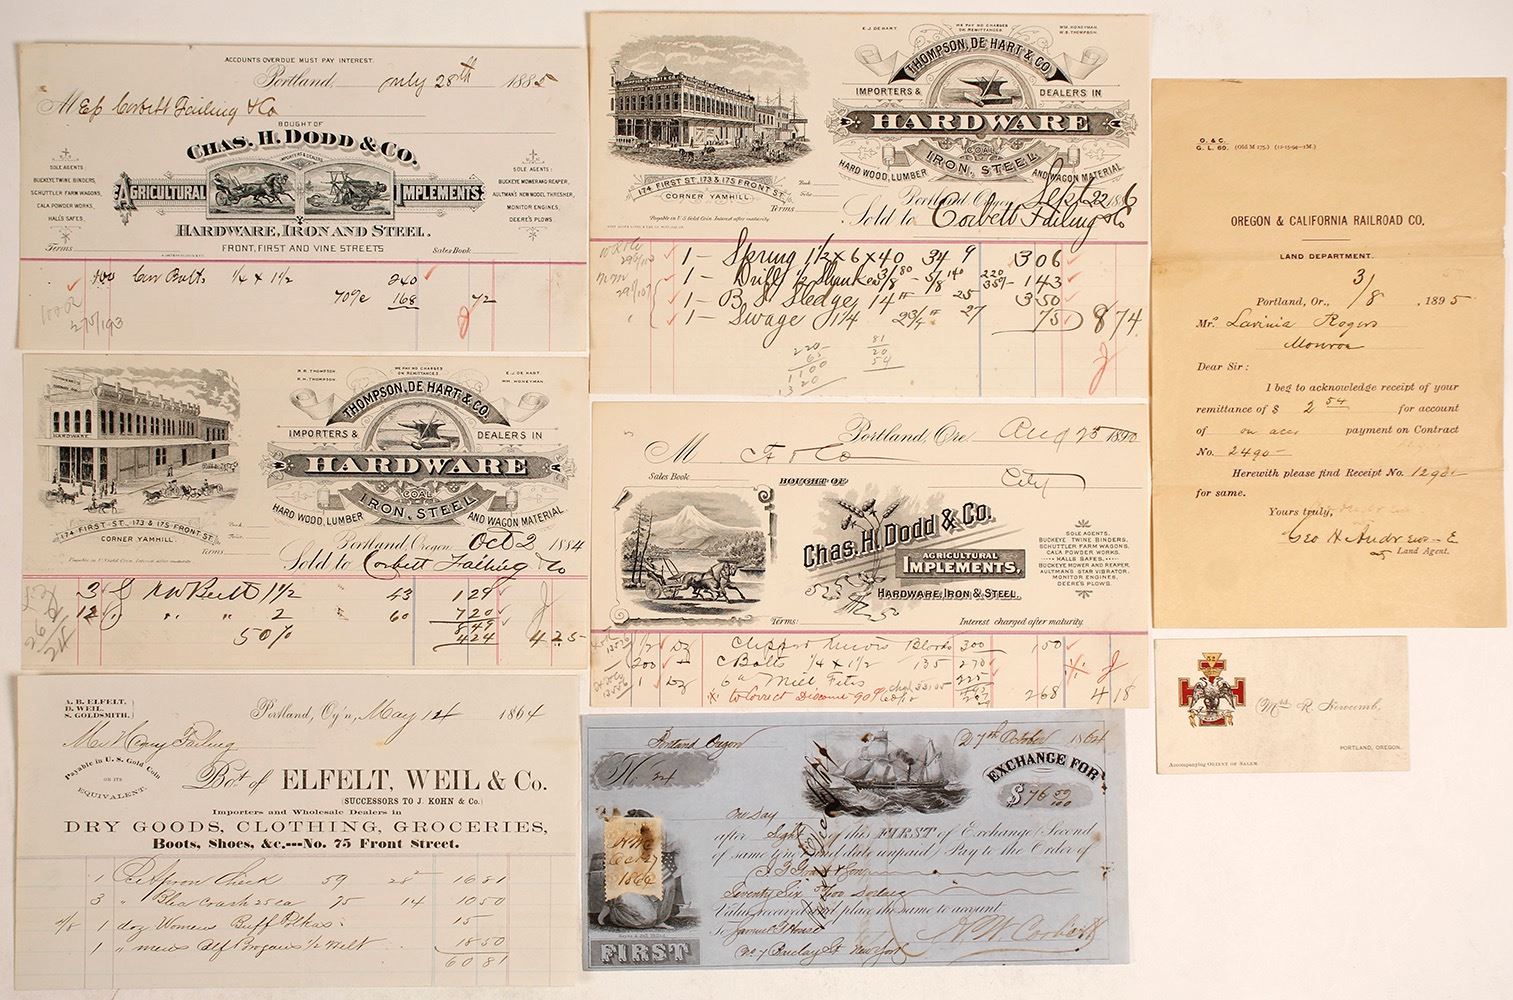 ACCOUNTS OVERDUE MUST PAY INTEREST.
Portland, July 28th 1885
Corbett Failing & Co
BOUGHT OF
CHAS. H. DODD & CO.
IMPORTERS & DEALERS
AGRICULTURAL IMPLEMENTS
SOLE AGENTS
BUCKEYE TWINE BINDERS,
SCHUTTLER FARM WAGONS,
CALA POWDER WORKS,
HALL'S SAFES.
SOLE AGENTS:
BUCKEYE MOWER AND REAPER,
AULTMAN'S NEW MODEL THRESHER,
MONITOR ENGINES,
DEERE'S PLOWS.
HARDWARE, IRON AND STEEL.
FRONT, FIRST AND VINE STREETS
Terms Sales Book
100 Bolts 1/4 x 1 1/2 240
70% 168 72
E.J. DE HART
WE PAY NO CHARGES
ON REMITTANCES
WM. HONEYMAN.
W.S. THOMPSON.
THOMPSON, DE HART & CO.
IMPORTERS & DEALERS IN
HARDWARE
COAL
IRON, STEEL
HARD WOOD, LUMBER AND WAGON MATERIAL
174 FIRST ST. 173 & 175 FRONT ST.
CORNER YAMHILL
Terms
Payable in U S Gold Coin. Interest after maturity
Portland, Oregon, Sept 22 1886
Sold to Corbett Failing & Co
1 - Spring 1 1/2 x 6 x 40 34 9 306
1 - Drill 1/2 Shank 143
1 - B S Sledge 14 25 350
1 - Swage 1 1/4 2 3/4 27 75 874
O. & C.
G. L. 60. (Old M 175.) (12-15-94-2M.)
OREGON & CALIFORNIA RAILROAD CO.
LAND DEPARTMENT.
Portland, Or., 3/8, 1895
Mr. Lavinia Rogers
Monroe
Dear Sir:
I beg to acknowledge receipt of your
remittance of $ 2 54 for account
of on acc payment on Contract
No. 2490-
Herewith please find Receipt No.
for same.
Yours truly,
Geo H Andrews
Land Agent.
R. R. THOMPSON
R.H. THOMPSON.
WE PAY NO CHARGES
ON REMITTANCES
E.J. DE HART.
WM. HONEYMAN
THOMPSON, DE HART & CO.
IMPORTERS & DEALERS IN
HARDWARE
COAL
IRON, STEEL
HARD WOOD, LUMBER AND WAGON MATERIAL
HARDWARE
174 FIRST ST. 173 & 175 FRONT ST.
CORNER YAMHILL
Terms
Portland, Oregon, Oct 2 1884
Sold to Corbett Failing & Co
3 Belt 1 1/2 43 129
12 " " 2 60 720
849
50% 424 425
Portland, Ore. Aug 25 1890
M F & Co
Sales Book City
BOUGHT OF
Chas. H. Dodd & Co.
AGRICULTURAL
IMPLEMENTS,
HARDWARE, IRON & STEEL.
SOLE AGENTS,
BUCKEYE TWINE BINDERS,
SCHUTTLER FARM WAGONS,
CALA POWDER WORKS.
HALLS SAFES,
BUCKEYE MOWER AND REAPER,
AULTMAN'S STAR VIBRATOR,
MONITOR ENGINES,
DEERE'S PLOWS.
Terms: Interest charged after maturity.
1/2 Dz Clipper Blocks 300 150
200 C Bolts 1/4 x 1 1/2 135 270
1 Dz Mill Files 225
to correct Discount 90% 268 418
A. B. ELFELT,
D. WEIL,
S. GOLDSMITH.
Portland, Og'n, May 14 1864
Mr Henry Failing
Payable in U. S. Gold Coin
OR ITS
EQUIVALENT.
Bot. of ELFELT, WEIL & Co.
(SUCCESSORS TO J. KOHN & Co.)
Importers and Wholesale Dealers in
DRY GOODS, CLOTHING, GROCERIES,
Boots, Shoes, &c.---No. 75 Front Street.
1 Apron Check 59 16 81
3 " Crash 25 ea 75 14 10 50
1 doz Womens Buff Polkas 15
1 " mens Calf Brogans 1/2 Welt 18 50
60 81
Portland Oregon 27th October 1864
No. 24
EXCHANGE FOR
$ 76 59/100
One Day
after Sight of this FIRST of Exchange (Second
of same tenor and date unpaid) Pay to the Order of
Seventy Six Dollars
Value received and place the same to account
To Samuel
No 7 Barclay St New York
H W Corbett
HWC
Oct 27
1864
FIRST
Mrs R. Newcomb,
PORTLAND, OREGON.
Accompanying ORIENT OF SALEM.